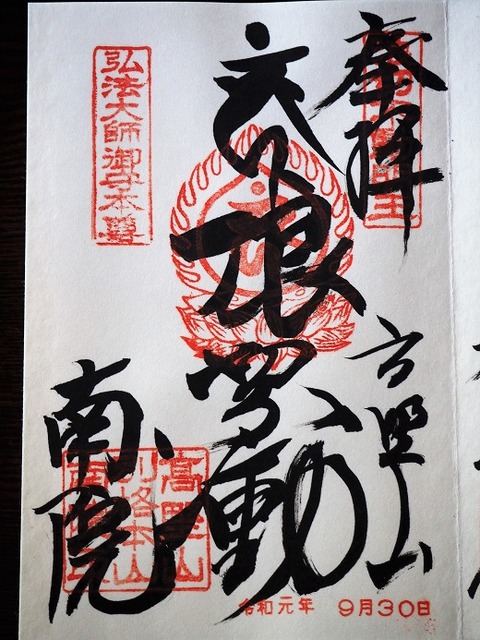 奉拝
高野山
浪切不動
南院
弘法大師御守本尊
高野山
別格本山
令和元年 9月30日